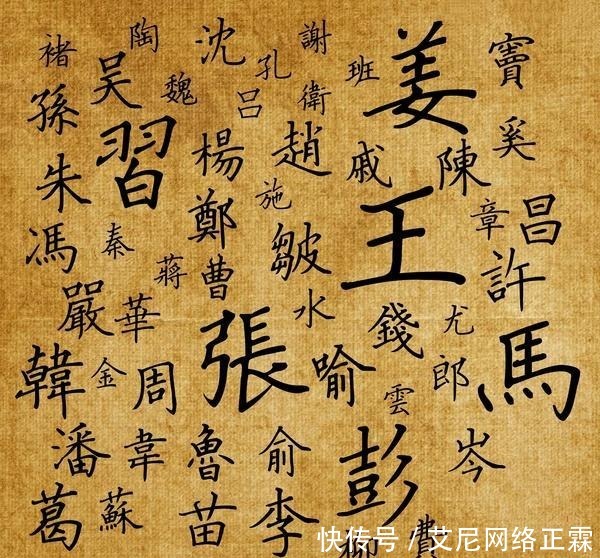 褚 陶 沈 謝 姜 竇
吳 魏 孔 班
孫 習 呂 衛 奚
朱 楊 趙 戚 陳
鄭 施 章 昌
馮 秦 蔣 曹 皺 王 許
嚴 華 水 錢 尤
韓 金 周 張 喻 雲 郎 馬
潘 韋 魯 俞 彭 岑
葛 蘇 苗 李 柳 費
快传号 / 艾尼网络正霖